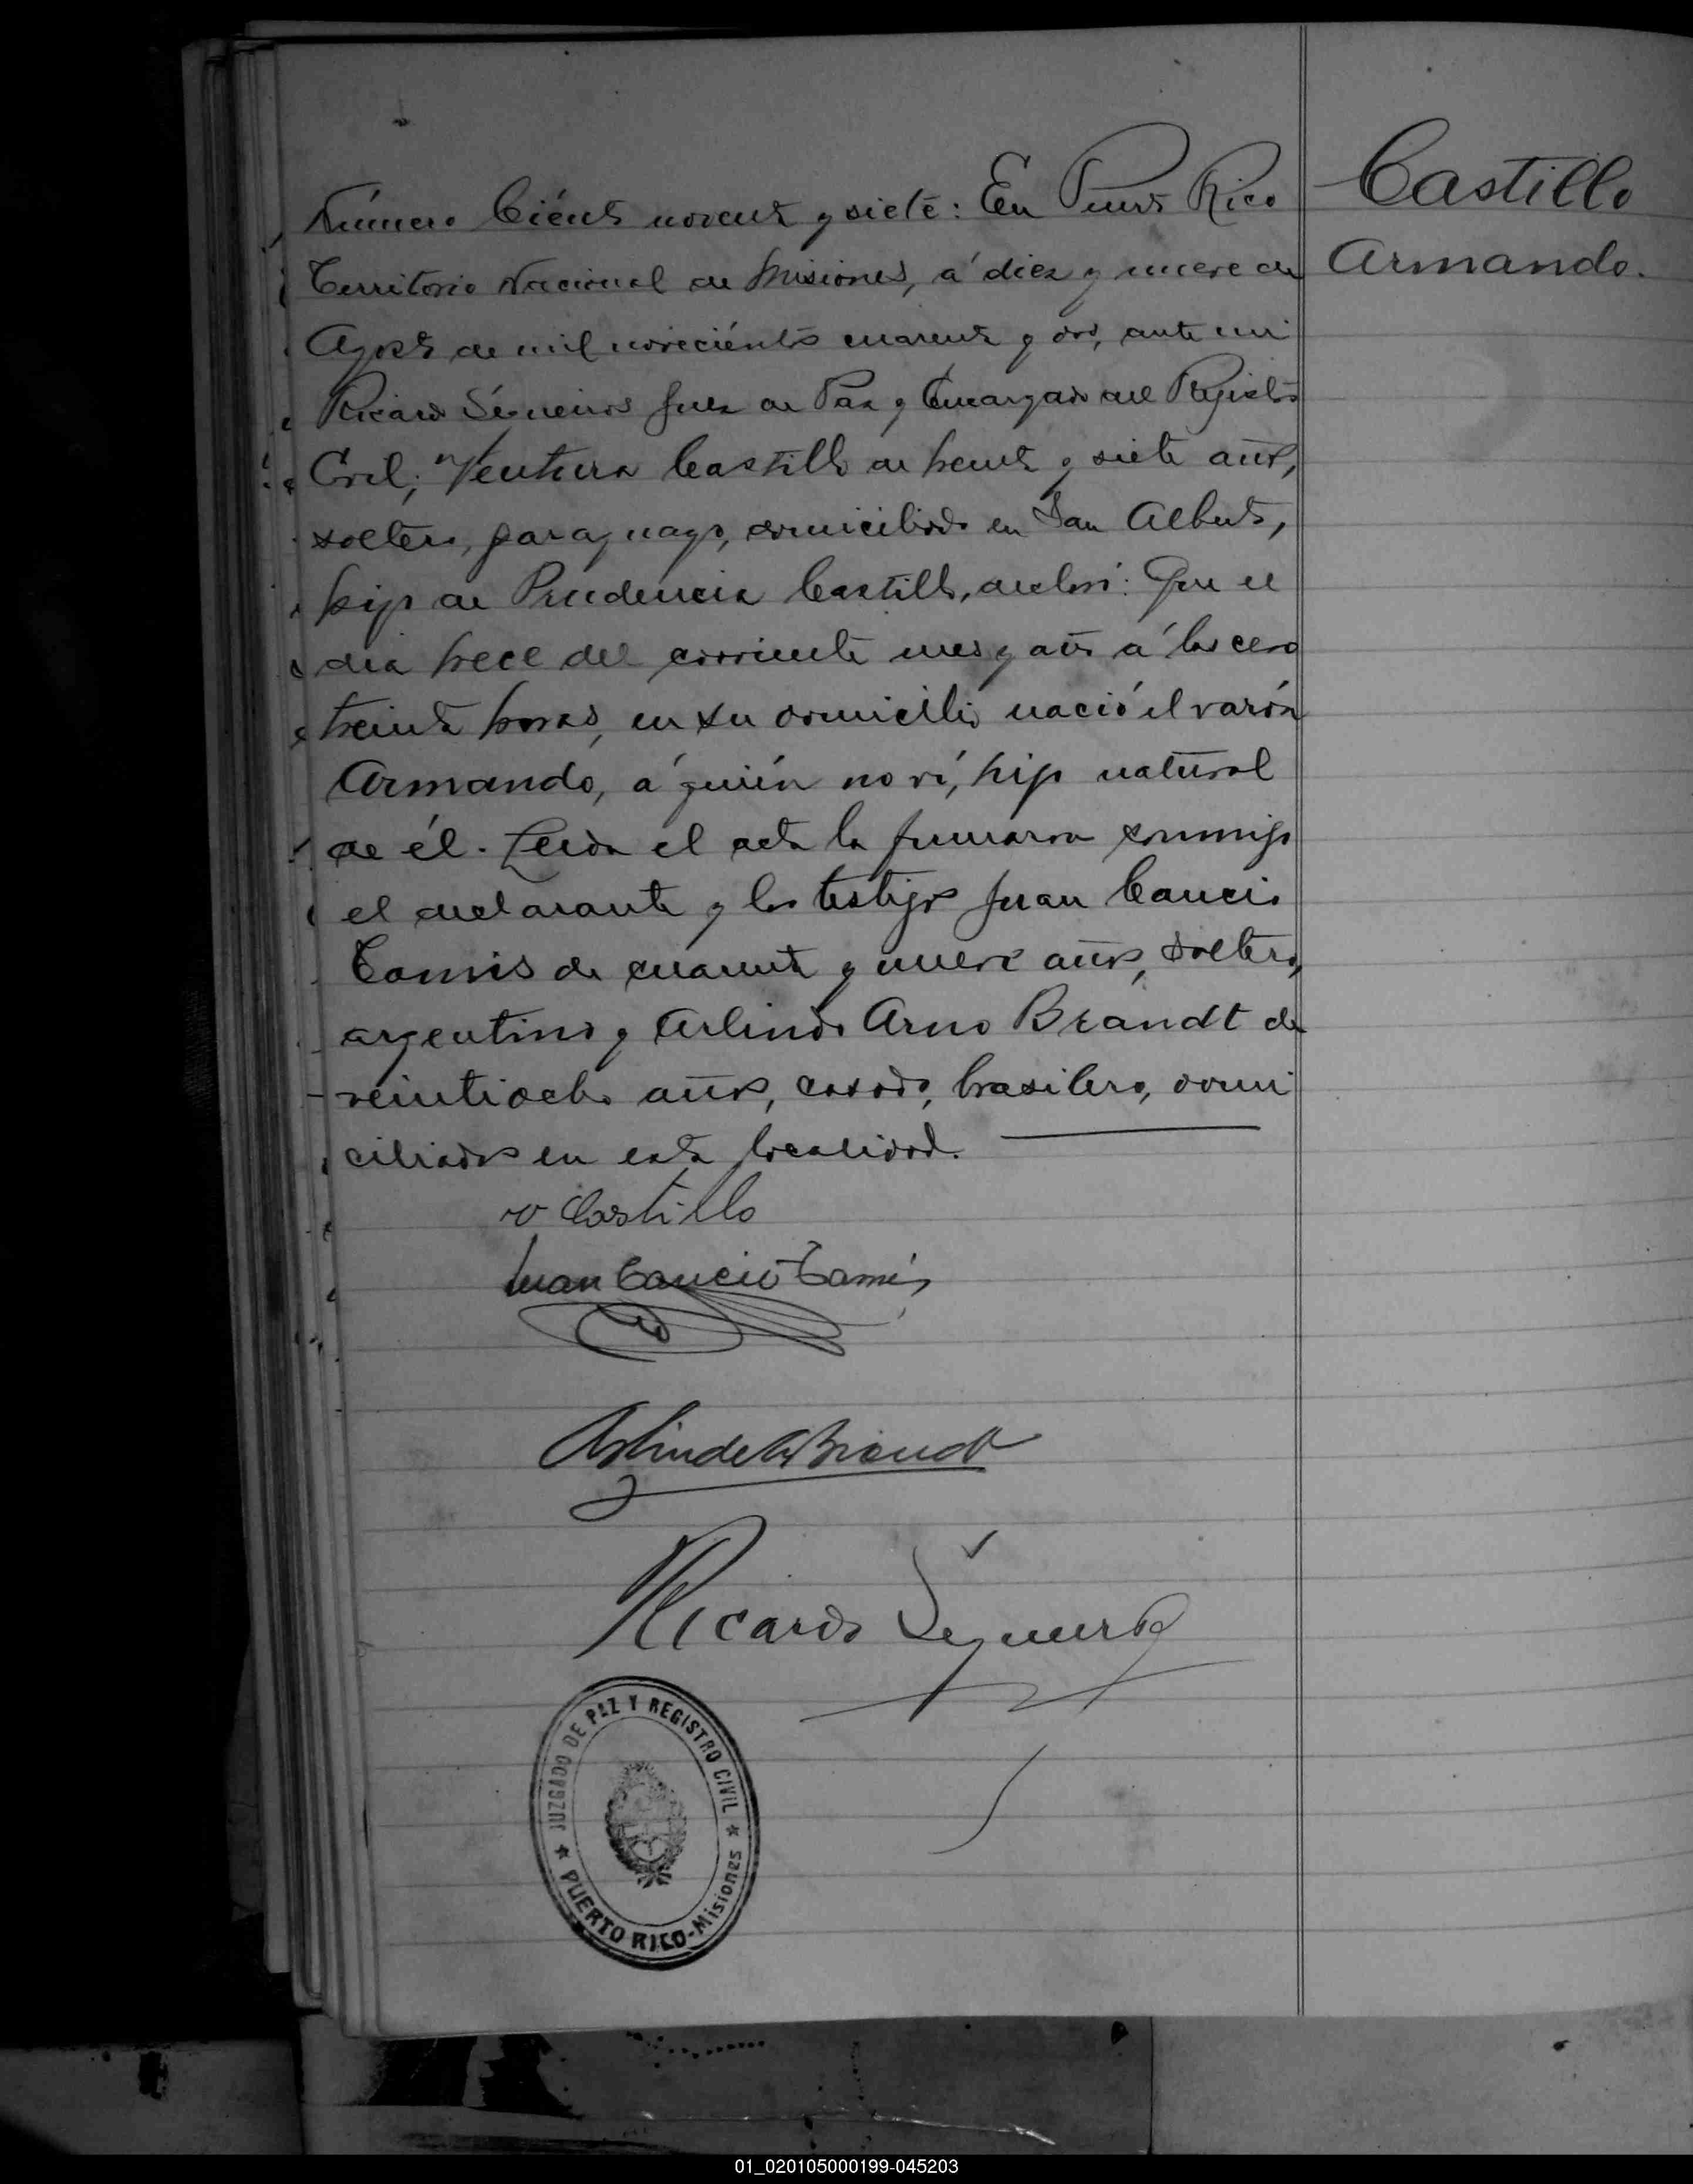 Castillo
Armando.
Número Ciénto noventa y siete: En Puerto Rico
Territorio Nacional de Misiones, á diez y nueve de
Agosto de mil noveciéntos cuarenta y dos, ante mi
Ricardo Séqueiros Juez de Paz y Encargado del Registro
Civil; Ventura Castillo de treinta y siete años,
soltero, paraguayo, domiciliado en San Alberto,
hijo de Prudencia Castillo, declaró: Que el
dia trece del corriente mes y año á las cero
treinta horas, en su domicilio nació el varón
Armando, á quién no ví, hijo natural
de él. Leida el acta la firmaron conmigo
el declarante y los testigos Juan Cancio
de cuarenta y nueve años, soltero,
argentino y Arlindo Arno Brandt de
veintiocho años, casado, brasilero, domi
ciliados en esta localidad.
V Castillo
Juan Cancio
Arlindo A Brandt
Ricardo
JUZGADO DE PAZ Y REGISTRO CIVIL
PUERTO RICO-Misiones
01_020105000199-045203